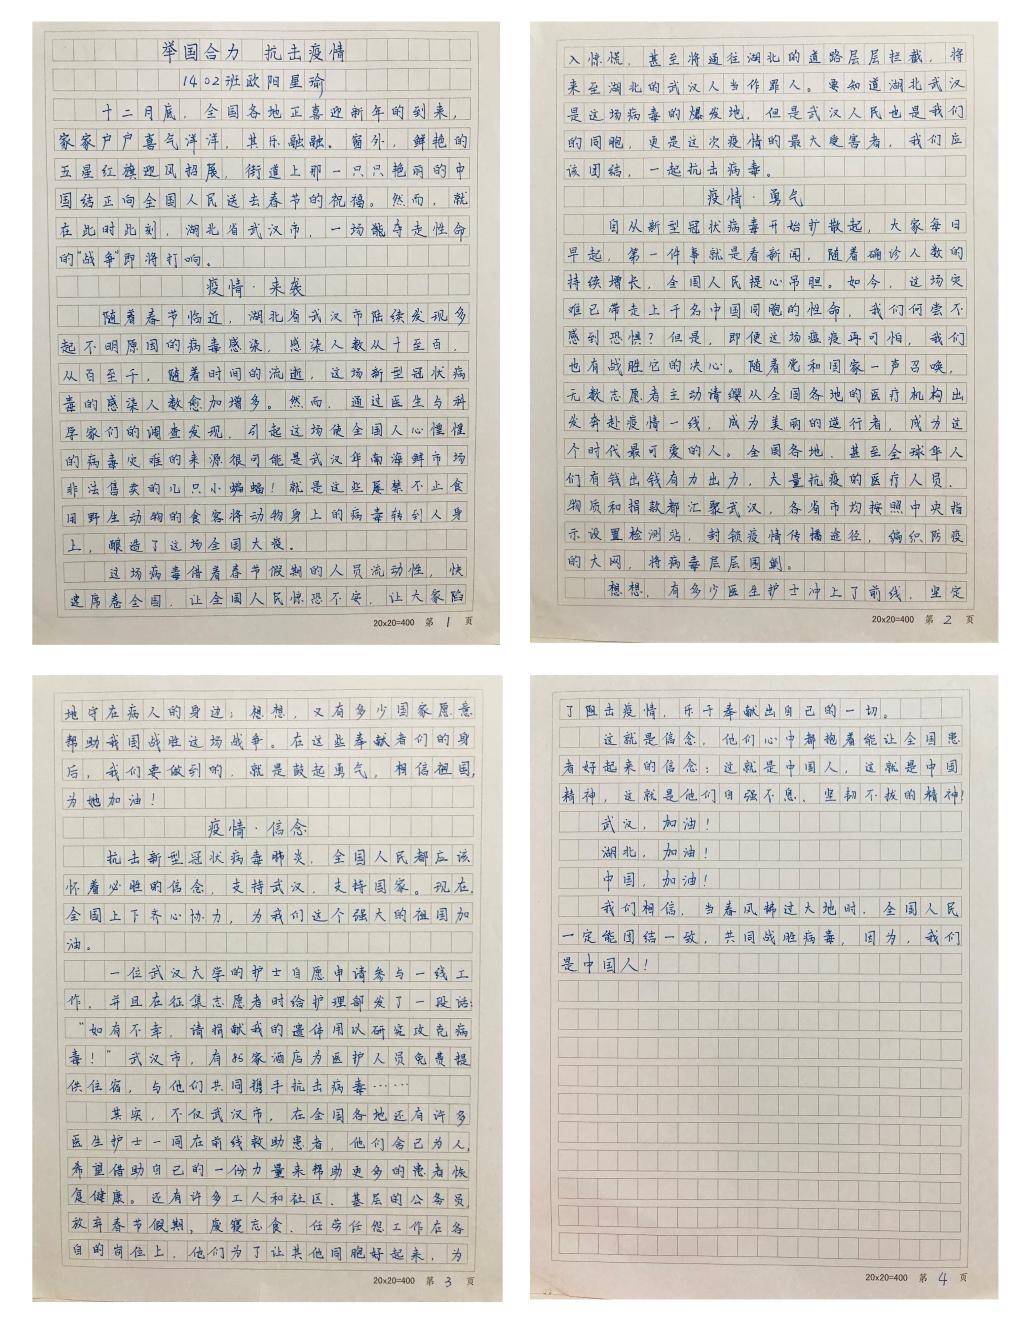 举国合力 抗击疫情
1402班欧阳星瑜
十二月底，全国各地正喜迎新年的到来，
家家户户喜气洋洋，其乐融融。窗外，鲜艳的
五星红旗迎风招展，街道上那一只只艳丽的中
国结正向全国人民送去春节的祝福。然而，就
在此时此刻，湖北省武汉市，一场能夺走性命
的"战争"即将打响。
疫情·来袭
随着春节临近，湖北省武汉市陆续发现多
起不明原因的病毒感染，感染人数从十至百，
从百至千，随着时间的流逝，这场新型冠状病
毒的感染人数愈加增多。然而，通过医生与科
学家们的调查发现，引起这场使全国人心惶惶
的病毒灾难的来源很可能是武汉华南海鲜市场
非法售卖的几只小蝙蝠！就是这些屡禁不止食
用野生动物的食客将动物身上的病毒转到人身
上，酿造了这场全国大疫。
这场病毒借着春节假期的人员流动性，快
速席卷全国，让全国人民惊恐不安，让大家陷
20x20=400 第 1 页
入惊慌，甚至将通往湖北的道路层层拦截，将
来至湖北的武汉人当作罪人。要知道湖北武汉
是这场病毒的爆发地，但是武汉人民也是我们
的同胞，更是这次疫情的最大受害者，我们应
该团结，一起抗击病毒。
疫情·勇气
自从新型冠状病毒开始扩散起，大家每日
早起，第一件事就是看新闻，随着确诊人数的
持续增长，全国人民提心吊胆。如今，这场灾
难已带走上千名中国同胞的性命，我们何尝不
感到恐惧？但是，即使这场瘟疫再可怕，我们
也有战胜它的决心。随着党和国家一声召唤，
无数志愿者主动请缨从全国各地的医疗机构出
发奔赴疫情一线，成为美丽的逆行者，成为这
个时代最可爱的人。全国各地、甚至全球华人
们有钱出钱有力出力，大量抗疫的医疗人员、
物质和捐款都汇聚武汉，各省市均按照中央指
示设置检测站，封锁疫情传播途径，编织防疫
的大网，将病毒层层围剿。
想想，有多少医生护士冲上了前线，坚定
20x20=400 第 2 页
地守在病人的身边；想想，又有多少国家愿意
帮助我国战胜这场战争。在这些奉献者们的身
后，我们要做到的，就是鼓起勇气，相信祖国，
为她加油！
疫情·信念
抗击新型冠状病毒肺炎，全国人民都应该
怀着必胜的信念，支持武汉，支持国家。现在，
全国上下齐心协力，为我们这个强大的祖国加
油。
一位武汉大学的护士自愿申请参与一线工
作，并且在征集志愿者时给护理部发了一段话：
"如有不幸，请捐献我的遗体用以研究攻克病
毒！"武汉市，有85家酒店为医护人员免费提
供住宿，与他们共同携手抗击病毒……
其实，不仅武汉市，在全国各地还有许多
医生护士一同在前线救助患者，他们舍己为人，
希望借助自己的一份力量来帮助更多的患者恢
复健康。还有许多工人和社区、基层的公务员，
放弃春节假期，废寝忘食、任劳任怨工作在各
自的岗位上，他们为了让其他同胞好起来，为
20x20=400 第 3 页
了阻击疫情，乐于奉献出自己的一切。
这就是信念，他们心中都抱着能让全国患
者好起来的信念；这就是中国人，这就是中国
精神，这就是他们自强不息、坚韧不拔的精神！
武汉，加油！
湖北，加油！
中国，加油！
我们相信，当春风拂过大地时，全国人民
一定能团结一致，共同战胜病毒，因为，我们
是中国人！
20x20=400 第 4 页